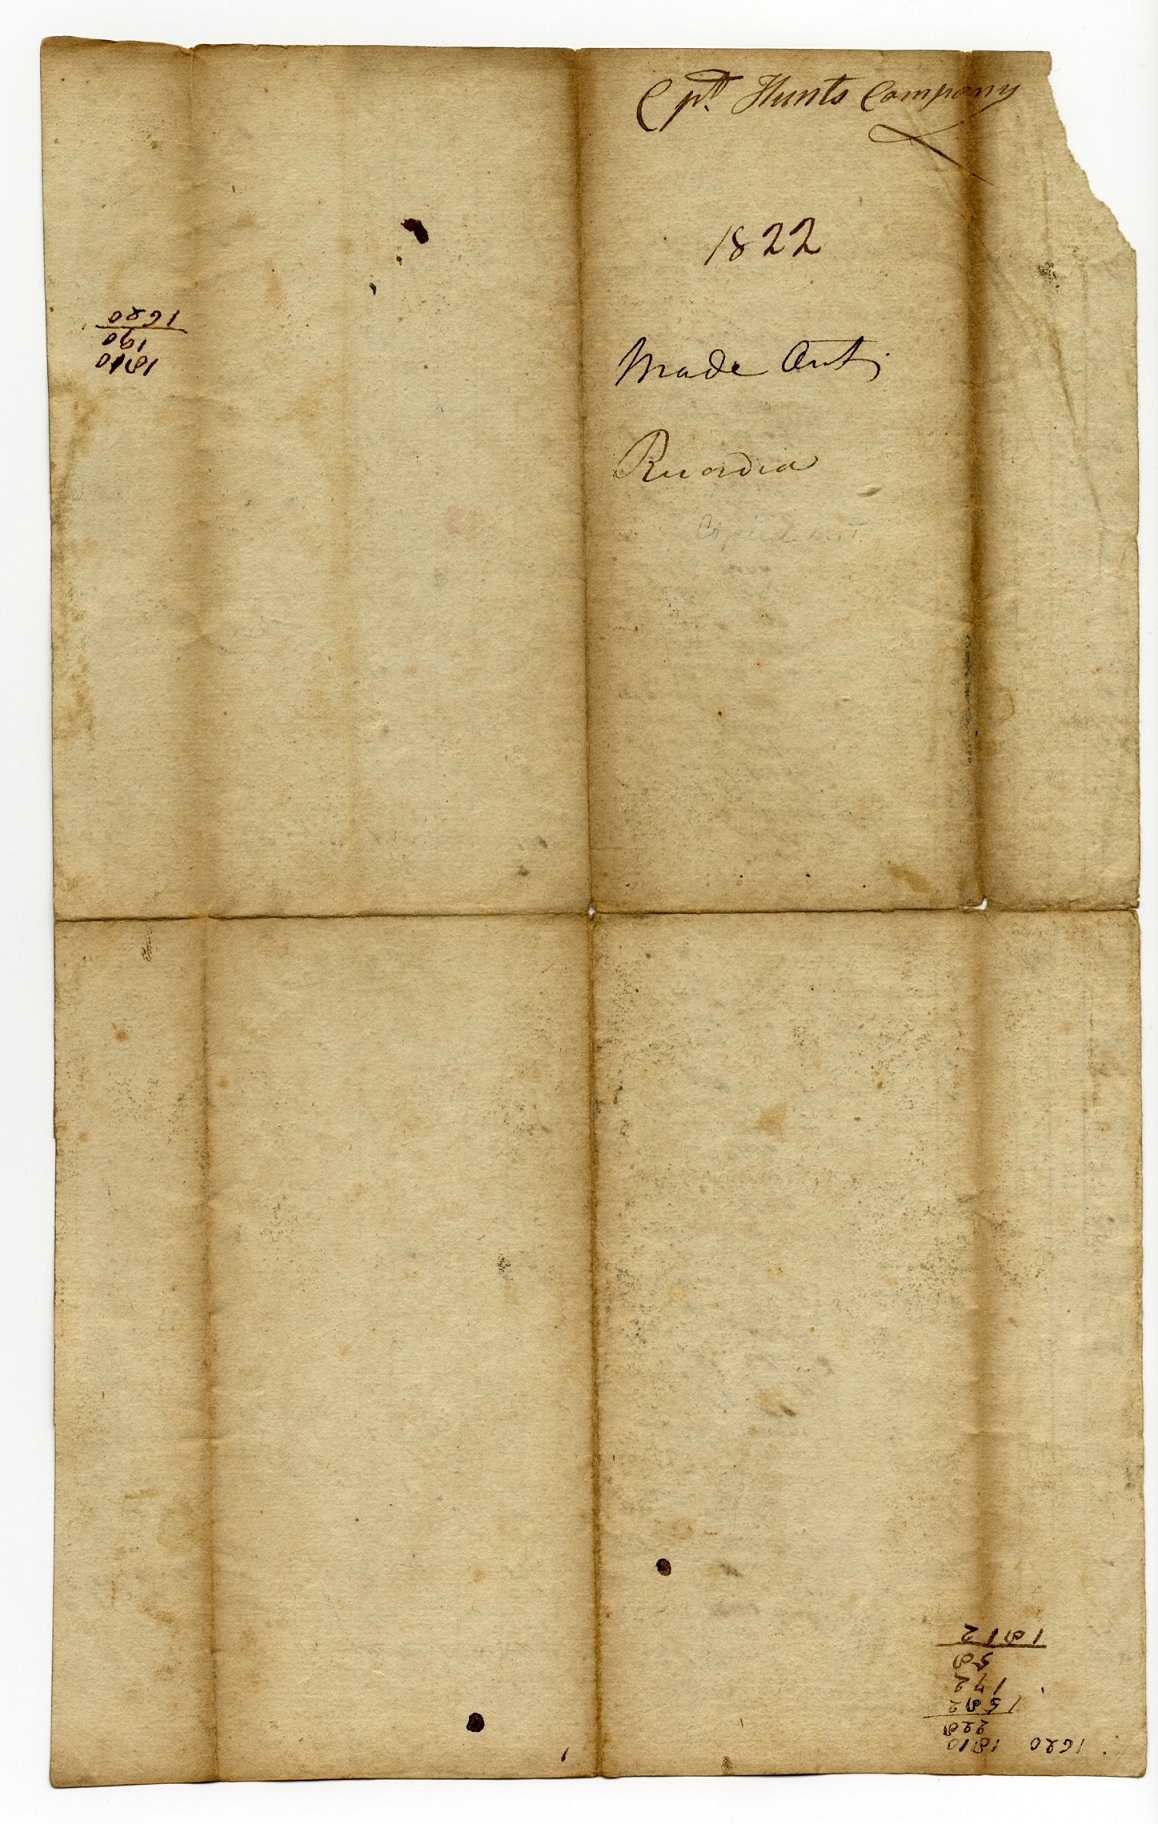 Cpt. Hunts Company
1822
Made Out
Copied out
1810
190
1620
1620 1810
228
1582
172
58
1812